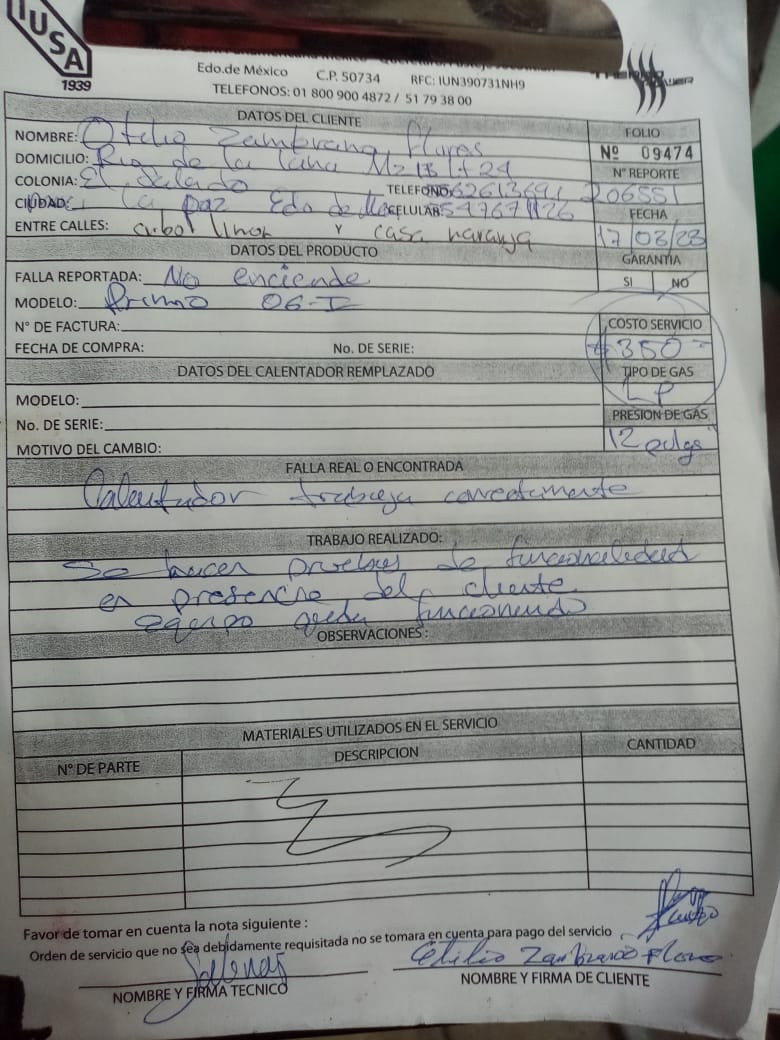 IUSA
1939
Edo.de México C.P. 50734 RFC: IUN390731NH9
TELEFONOS: 01 800 900 4872 / 51 79 38 00
DATOS DEL CLIENTE
FOLIO
Nº 09474
NOMBRE: Otilio Zambrano Flores
DOMICILIO: Rio de la Lana Mz 13 Lt 24
Nº REPORTE
206551
COLONIA: El Salado TELEFONO: 62613691
CIUDAD: La paz Edo de Mex CELULAR:
FECHA
17/03/23
ENTRE CALLES: arbol limon Y casa naranja
DATOS DEL PRODUCTO
GARANTIA
SI NO
FALLA REPORTADA: No enciende
MODELO: Primo 06-I
Nº DE FACTURA:
COSTO SERVICIO
$350-
FECHA DE COMPRA: No. DE SERIE:
DATOS DEL CALENTADOR REMPLAZADO
TIPO DE GAS
LP
MODELO:
No. DE SERIE:
PRESION DE GAS
12 pulgs
MOTIVO DEL CAMBIO:
FALLA REAL O ENCONTRADA
Calentador trabaja correctamente
TRABAJO REALIZADO:
Se hacen pruebas de funcionalidad
en presencia del cliente.
equipo queda funcionando
OBSERVACIONES:
MATERIALES UTILIZADOS EN EL SERVICIO
Nº DE PARTE DESCRIPCION CANTIDAD
Favor de tomar en cuenta la nota siguiente :
Orden de servicio que no sea debidamente requisitada no se tomara en cuenta para pago del servicio
Otilio Zambrano Flores
NOMBRE Y FIRMA TECNICO NOMBRE Y FIRMA DE CLIENTE